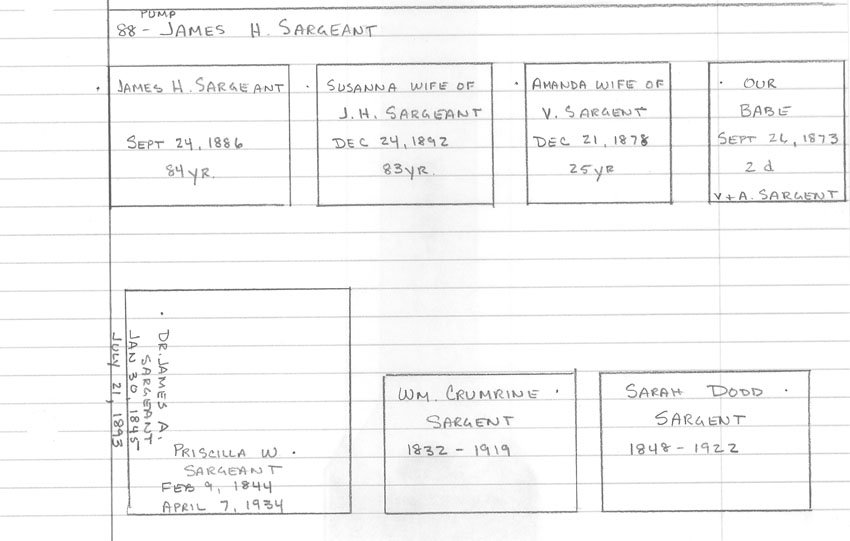 PUMP
88 - JAMES H. SARGEANT
JAMES H. SARGEANT
SEPT 24, 1886
84 YR.
SUSANNA WIFE OF
J. H. SARGEANT
DEC 24, 1892
83 YR.
AMANDA WIFE OF
V. SARGENT
DEC 21, 1878
25 YR
OUR
BABE
SEPT 26, 1873
2 d
V + A. SARGENT
DR. JAMES A.
SARGEANT
JAN 30, 1845
JULY 21, 1893
PRISCILLA W.
SARGEANT
FEB 9, 1844
APRIL 7, 1934
WM. CRUMRINE
SARGENT
1832 - 1919
SARAH DODD
SARGENT
1848 - 1922